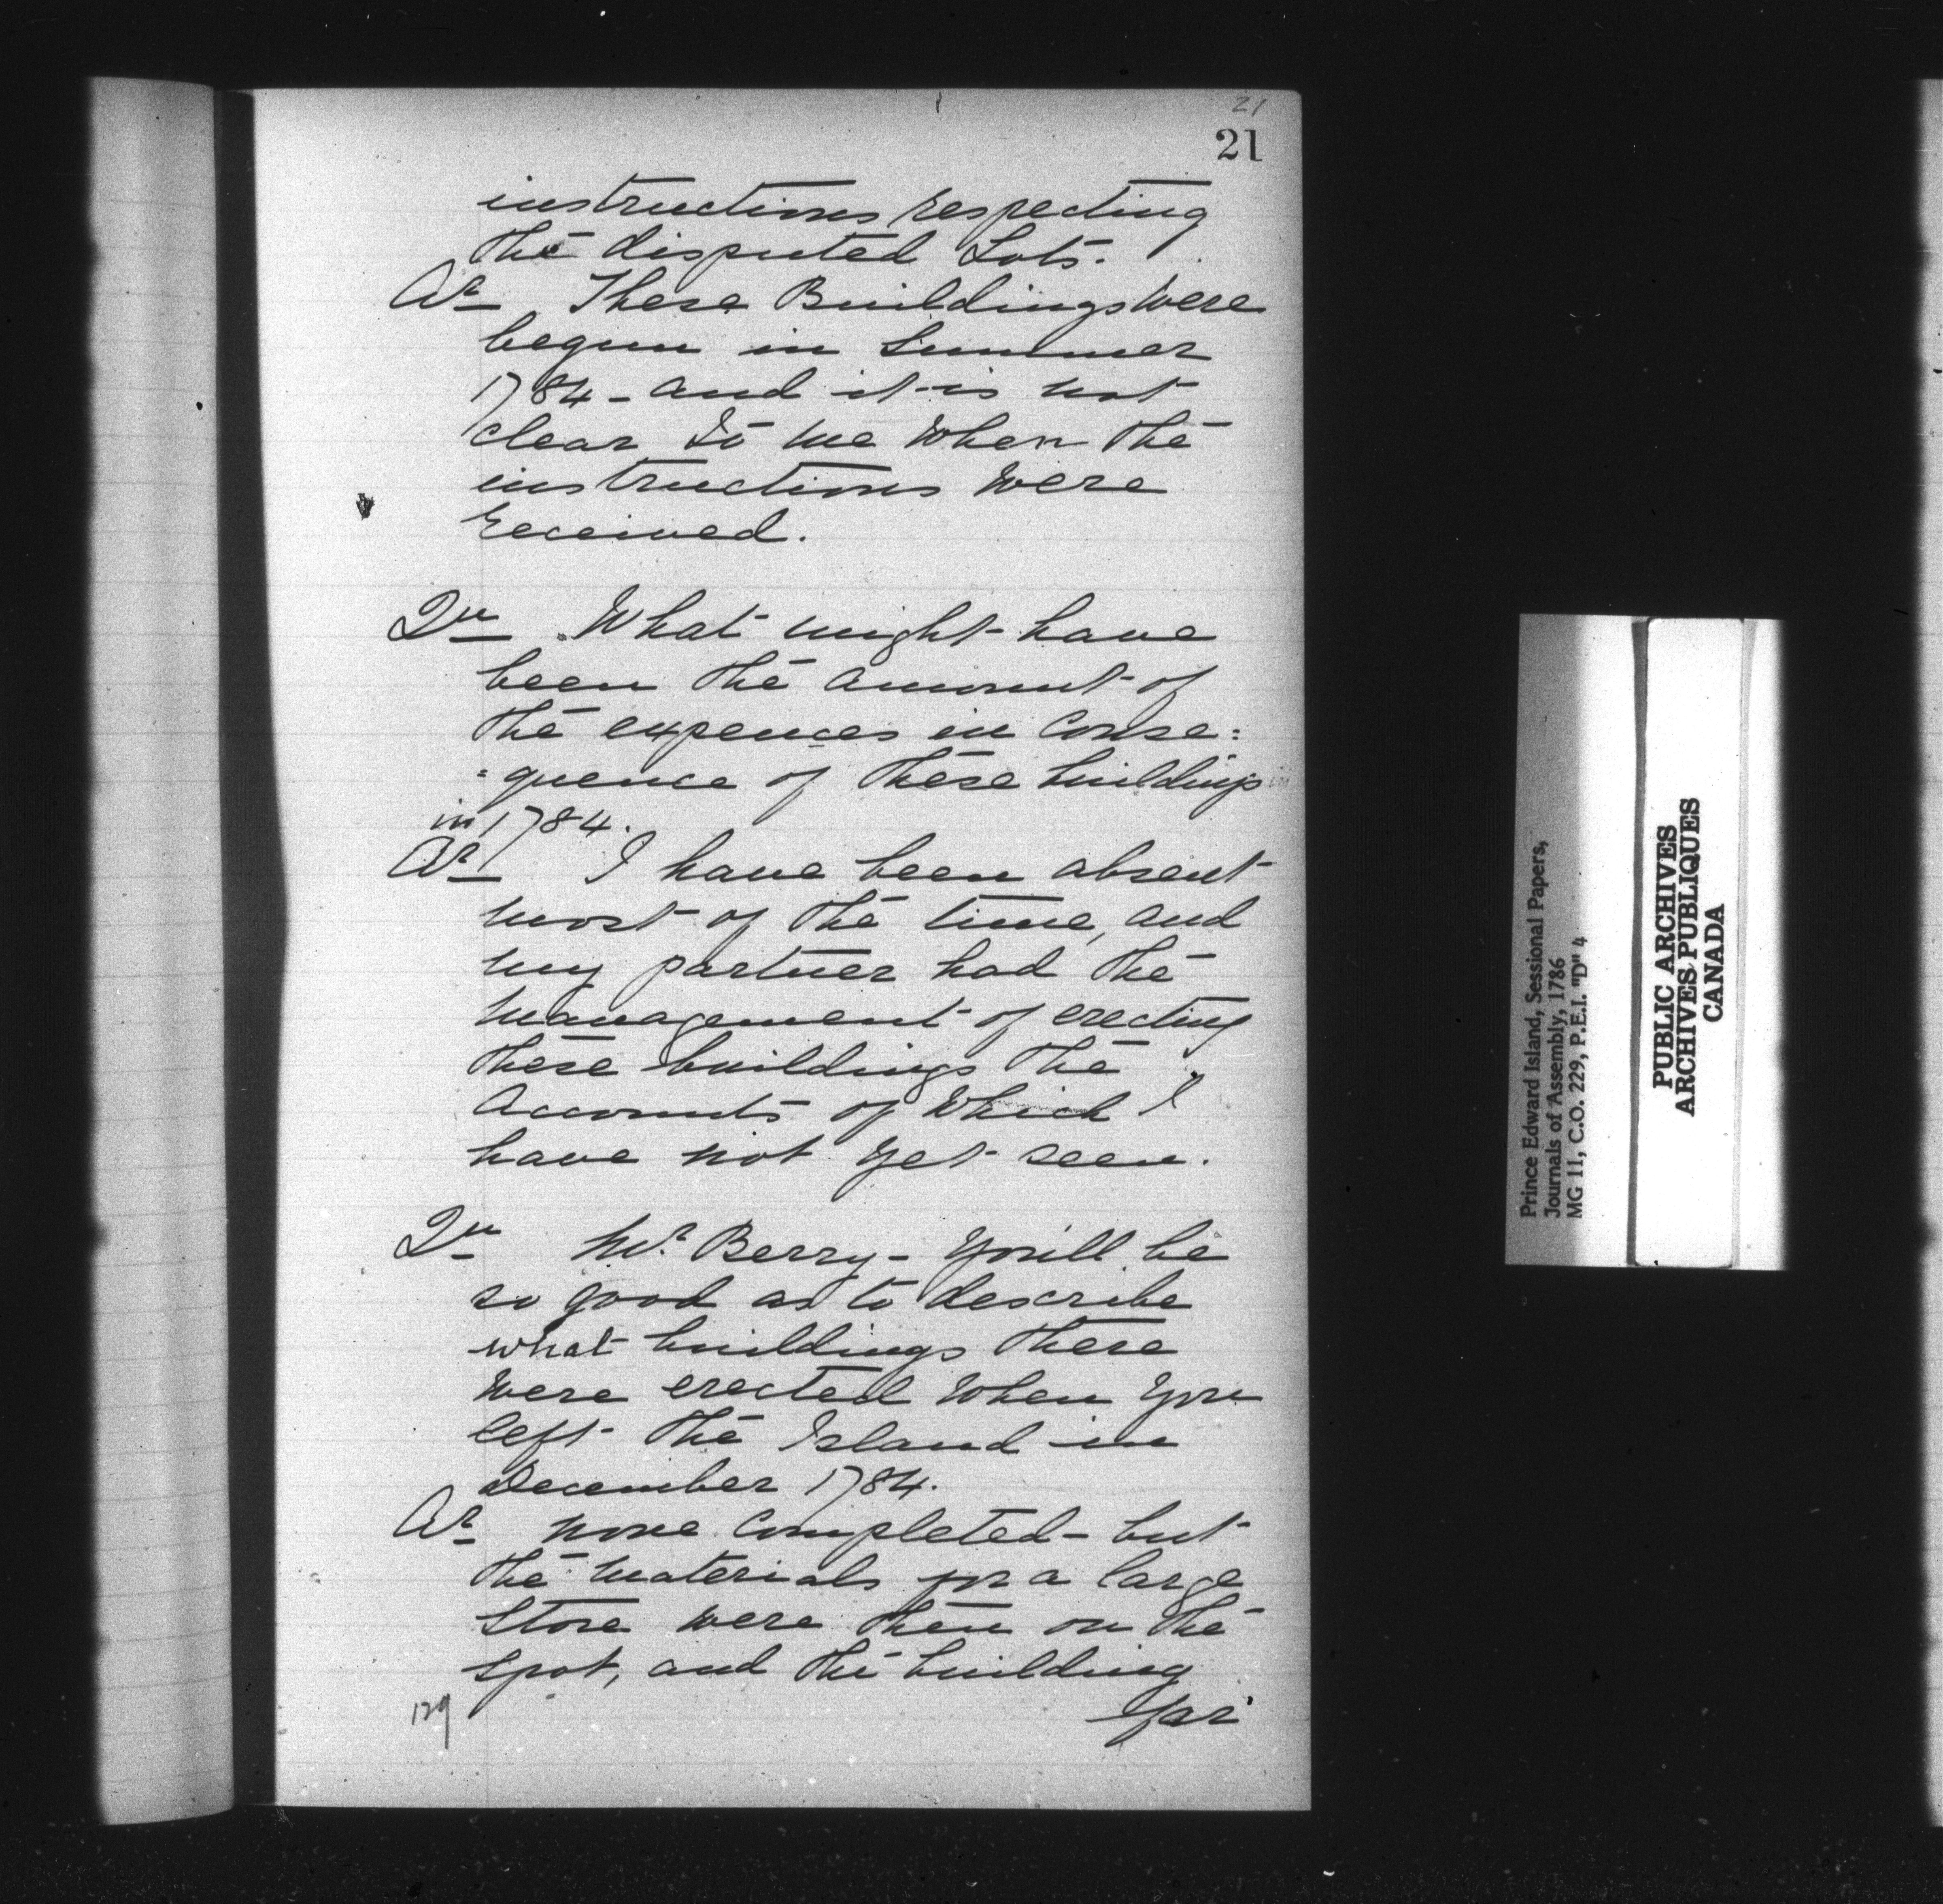 21
21
instructions respecting
the disputed Lots.
Ar These Buildings were
begun in Summer
1784 - and it is not
clear to me when the
instructions were
received.
Qu What might have
been the amount of
the expences in conse:
:quence of these buildings
in 1784.
Ar I have been absent
most of the time, and
my partner had the
management of erecting
these buildings the
accounts of which I
have not yet seen.
Qu Mr. Berry - You'll be
so good as to describe
what buildings there
were erected when you
left the Island in
December 1784.
Ar none completed - but
the materials for a large
Store were then on the
spot, and the building
129
Prince Edward Island, Sessional Papers,
Journals of Assembly, 1786
MG 11, C.O. 229, P.E.I. "D" 4
PUBLIC ARCHIVES
ARCHIVES PUBLIQUES
CANADA